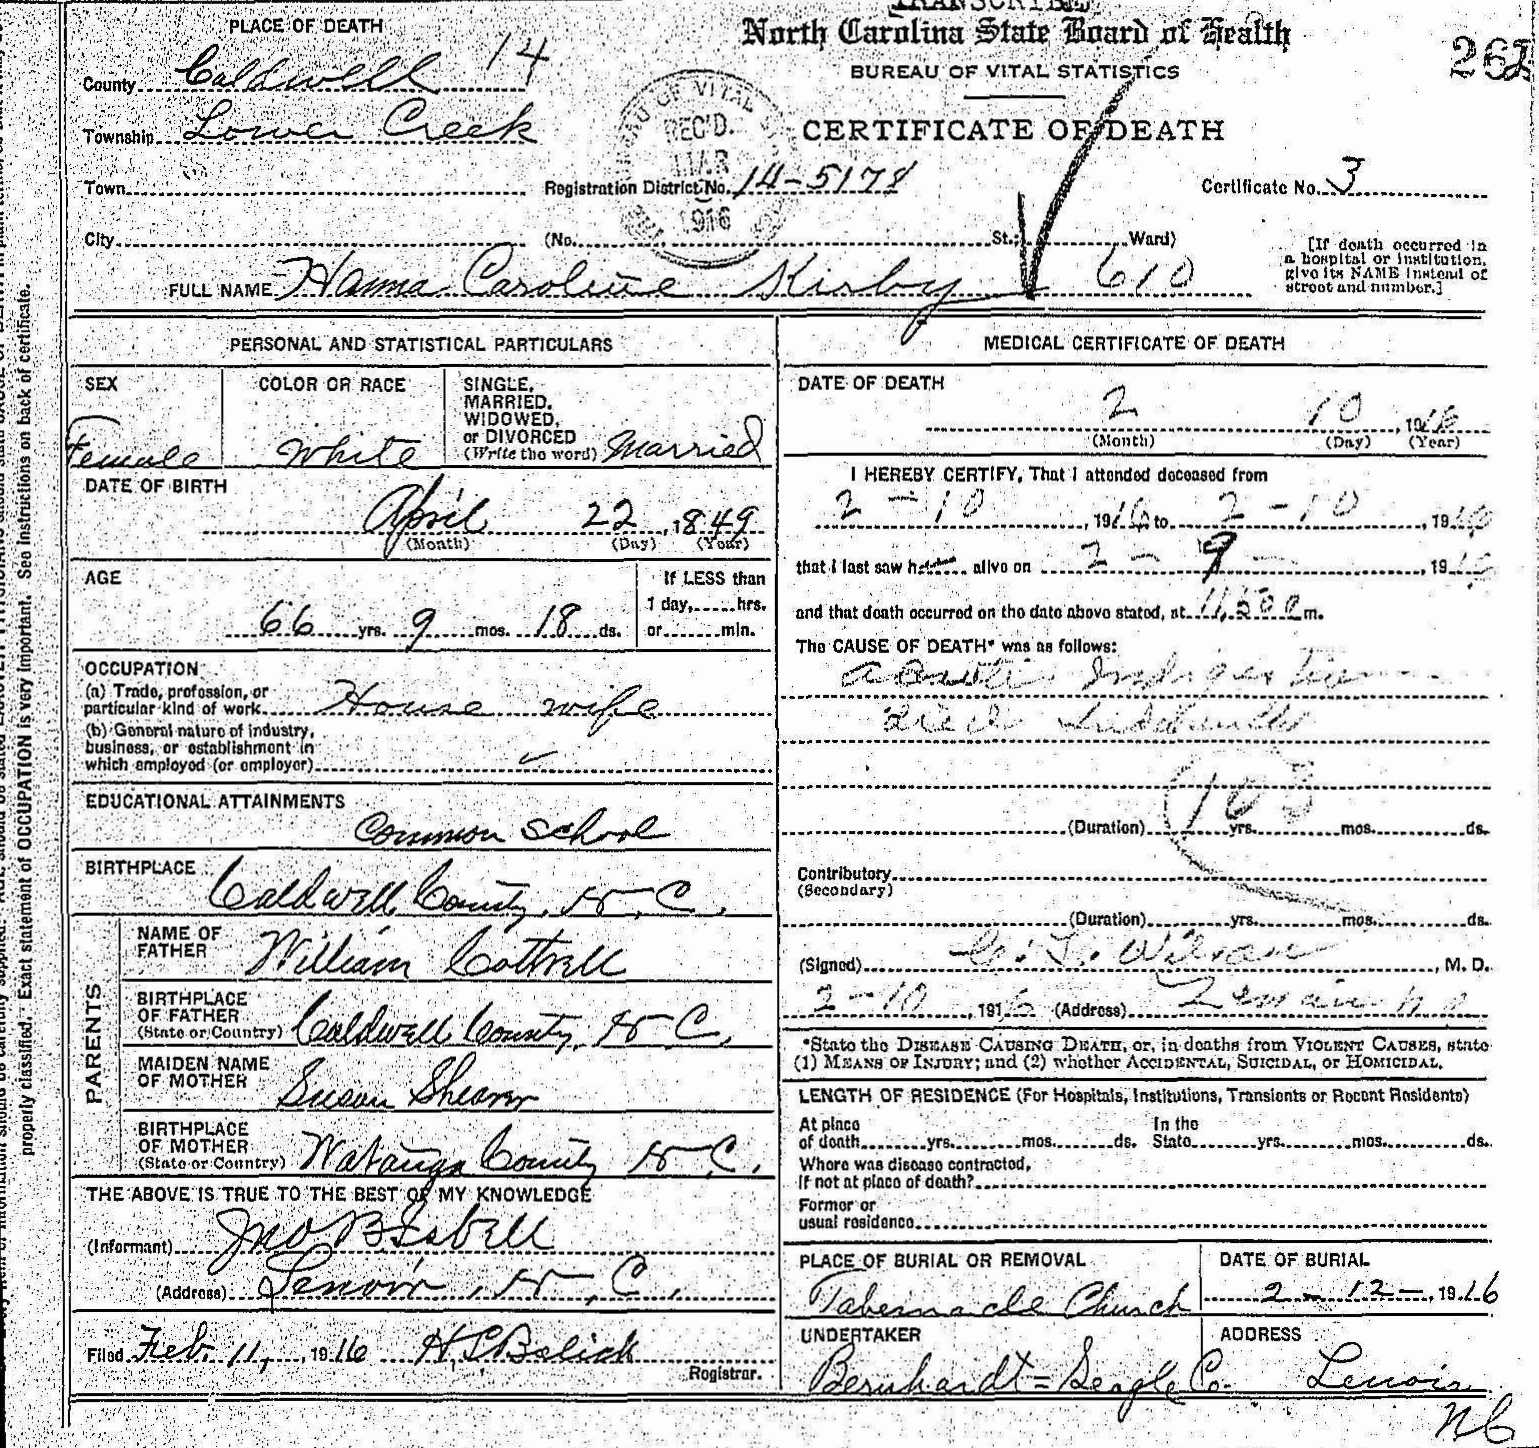 TRANSCRIBED
North Carolina State Board of Health
BUREAU OF VITAL STATISTICS
CERTIFICATE OF DEATH
262
PLACE OF DEATH
County Caldwell 14
Township Lower Creek
Town
Registration District No. 14-5178
Certificate No. 3
City (No. St.; Ward)
BUREAU OF VITAL
REC'D.
MAR
1916
[If death occurred in
a hospital or institution,
give its NAME instead of
street and number.]
FULL NAME Hanna Caroline Kirby 610
PERSONAL AND STATISTICAL PARTICULARS
SEX
Female
COLOR OR RACE
White
SINGLE,
MARRIED,
WIDOWED,
or DIVORCED
(Write the word) Married
DATE OF BIRTH
April 22, 1849
(Month) (Day) (Year)
AGE
66 yrs. 9 mos. 18 ds.
If LESS than
1 day, hrs.
or min.
OCCUPATION
(a) Trade, profession, or
particular kind of work House wife
(b) General nature of industry,
business, or establishment in
which employed (or employer)
EDUCATIONAL ATTAINMENTS
Common School
BIRTHPLACE
Caldwell County, N.C.
PARENTS
NAME OF
FATHER William Cottrell
BIRTHPLACE
OF FATHER
(State or Country) Caldwell County, N.C.
MAIDEN NAME
OF MOTHER Susan Shearer
BIRTHPLACE
OF MOTHER
(State or Country) Watauga County N.C.
THE ABOVE IS TRUE TO THE BEST OF MY KNOWLEDGE
(Informant) Jno B Isbell
(Address) Lenoir, N.C.
Filed Feb. 11, 1916
Registrar.
MEDICAL CERTIFICATE OF DEATH
DATE OF DEATH
2 10, 1916
(Month) (Day) (Year)
I HEREBY CERTIFY, That I attended deceased from
2-10, 1916 to 2-10, 1916
that I last saw h alive on 2-9-, 1916
and that death occurred on the date above stated, at 11,50 a m.
The CAUSE OF DEATH* was as follows:
Acute Indigestion
Died Suddenly
103
(Duration) yrs. mos. ds.
Contributory
(Secondary)
(Duration) yrs. mos. ds.
(Signed) Wilson, M. D.
2-10, 1916 (Address) Lenoir N.C.
*State the DISEASE CAUSING DEATH, or, in deaths from VIOLENT CAUSES, state
(1) MEANS OF INJURY; and (2) whether ACCIDENTAL, SUICIDAL, or HOMICIDAL.
LENGTH OF RESIDENCE (For Hospitals, Institutions, Transients or Recent Residents)
At place
of death yrs. mos. ds.
In the
State yrs. mos. ds.
Where was disease contracted,
If not at place of death?
Former or
usual residence
PLACE OF BURIAL OR REMOVAL
Tabernacle Church
DATE OF BURIAL
2-12-, 1916
UNDERTAKER
Bernhardt=Seagle Co.
ADDRESS
Lenoir
NC
properly classified. Exact statement of OCCUPATION is very important. See instructions on back of certificate.